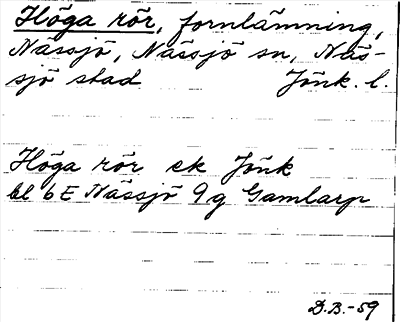 Höga rör, fornlämning,
Nässjö, Nässjö sn, Näs-
sjö stad Jönk. l.
Höga rör ek Jönk
bl 6E Nässjö 9g Gamlarp
D.B.-59